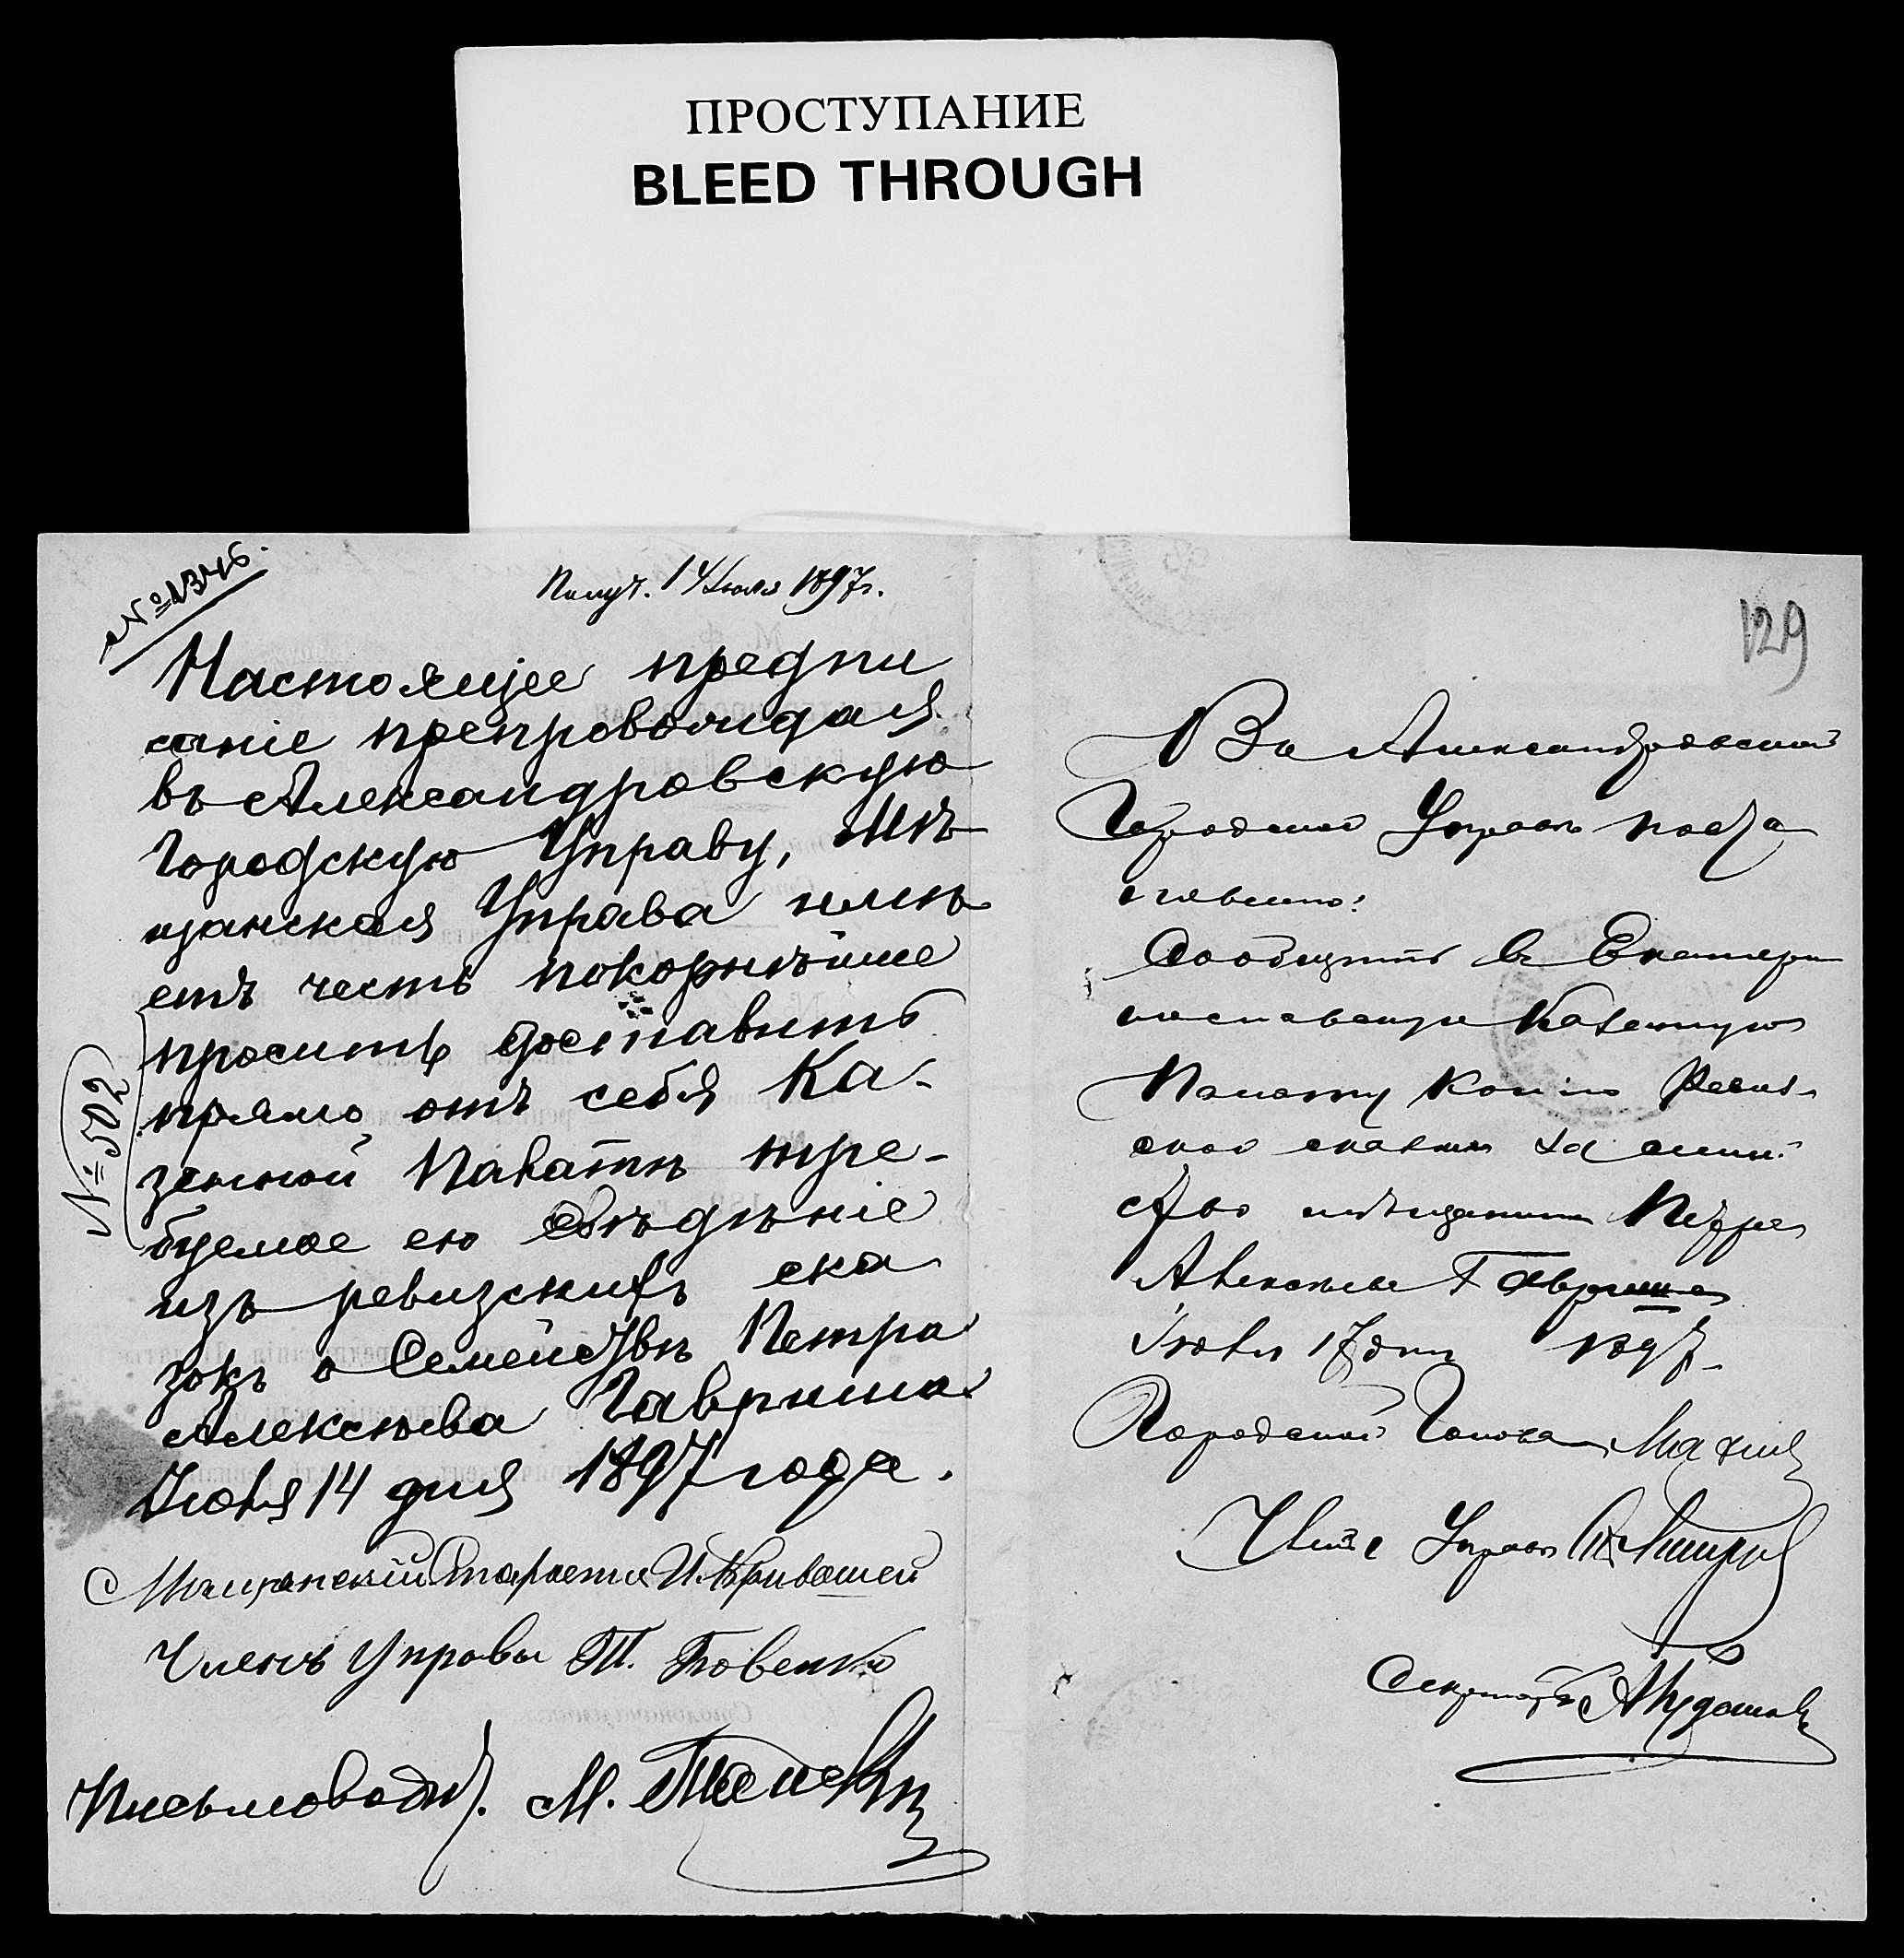 ПРОСТУПАНИЕ
BLEED THROUGH
№ 1346.
Получ. 14 Іюля 1897 г.
Настоящее предпи
саніе препровождая
въ Александровскую
Городскую Управу, Мѣ
щанская Управа имѣ
етъ честь покорнѣйше
просить доставить
прямо отъ себя Ка-
зенной Палатѣ тре-
буемое ею свѣдѣніе
изъ ревизскихъ ска
зокъ о Семействѣ Петра
Алексѣева Гавриша
Іюля 14 дня 1897 года.
№ 502
Мѣщанскій Староста И. Кривошей
Членъ Управы Т. Бовенко
Письмоводит. М.
129
Въ Александровской
Городской Управѣ поста
новлено:
Сообщить въ Екатери
нославскую Казенную
Палату Копію Ревиз-
ской сказки за семей
ство мѣщанина Петра
Алексѣева Гавриша
Іюля 17 дня 1897.
Городской Голова
Членъ Управы
Секретарь